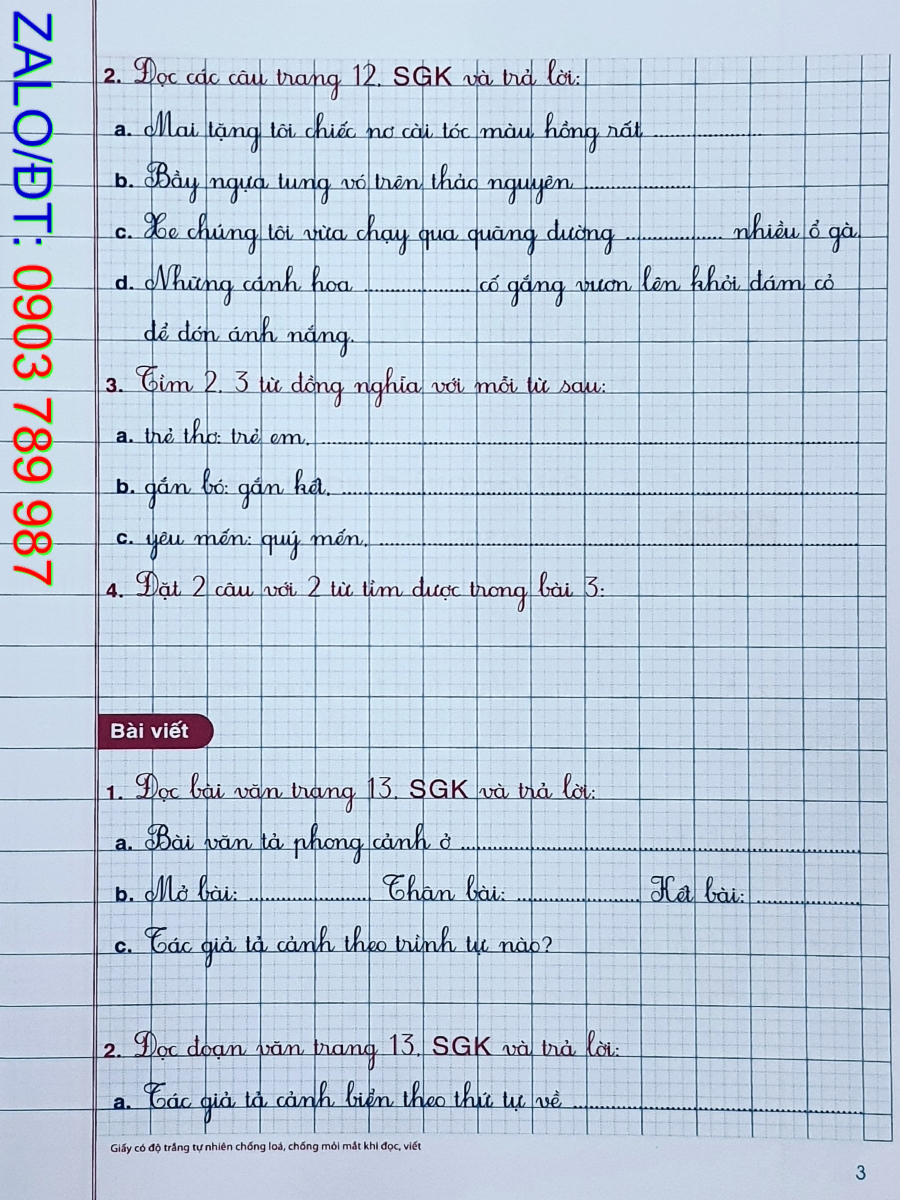 ZALO/ĐT: 0903 789 987
2. Đọc các câu trang 12, SGK và trả lời:
a. Mai tặng tôi chiếc nơ cài tóc màu hồng rất ..............
b. Bầy ngựa tung vó trên thảo nguyên ..............
c. Xe chúng tôi vừa chạy qua quãng đường .............. nhiều ổ gà.
d. Những cánh hoa .............. cố gắng vươn lên khỏi đám cỏ
để đón ánh nắng.
3. Tìm 2, 3 từ đồng nghĩa với mỗi từ sau:
a. trẻ thơ: trẻ em, ..............
b. gắn bó: gắn kết, ..............
c. yêu mến: quý mến, ..............
4. Đặt 2 câu với 2 từ tìm được trong bài 3:
Bài viết
1. Đọc bài văn trang 13, SGK và trả lời:
a. Bài văn tả phong cảnh ở ..............
b. Mở bài: .............. Thân bài: .............. Kết bài: ..............
c. Tác giả tả cảnh theo trình tự nào?
2. Đọc đoạn văn trang 13, SGK và trả lời:
a. Tác giả tả cảnh biển theo thứ tự về ..............
Giấy có độ trắng tự nhiên chống loá, chống mỏi mắt khi đọc, viết
3